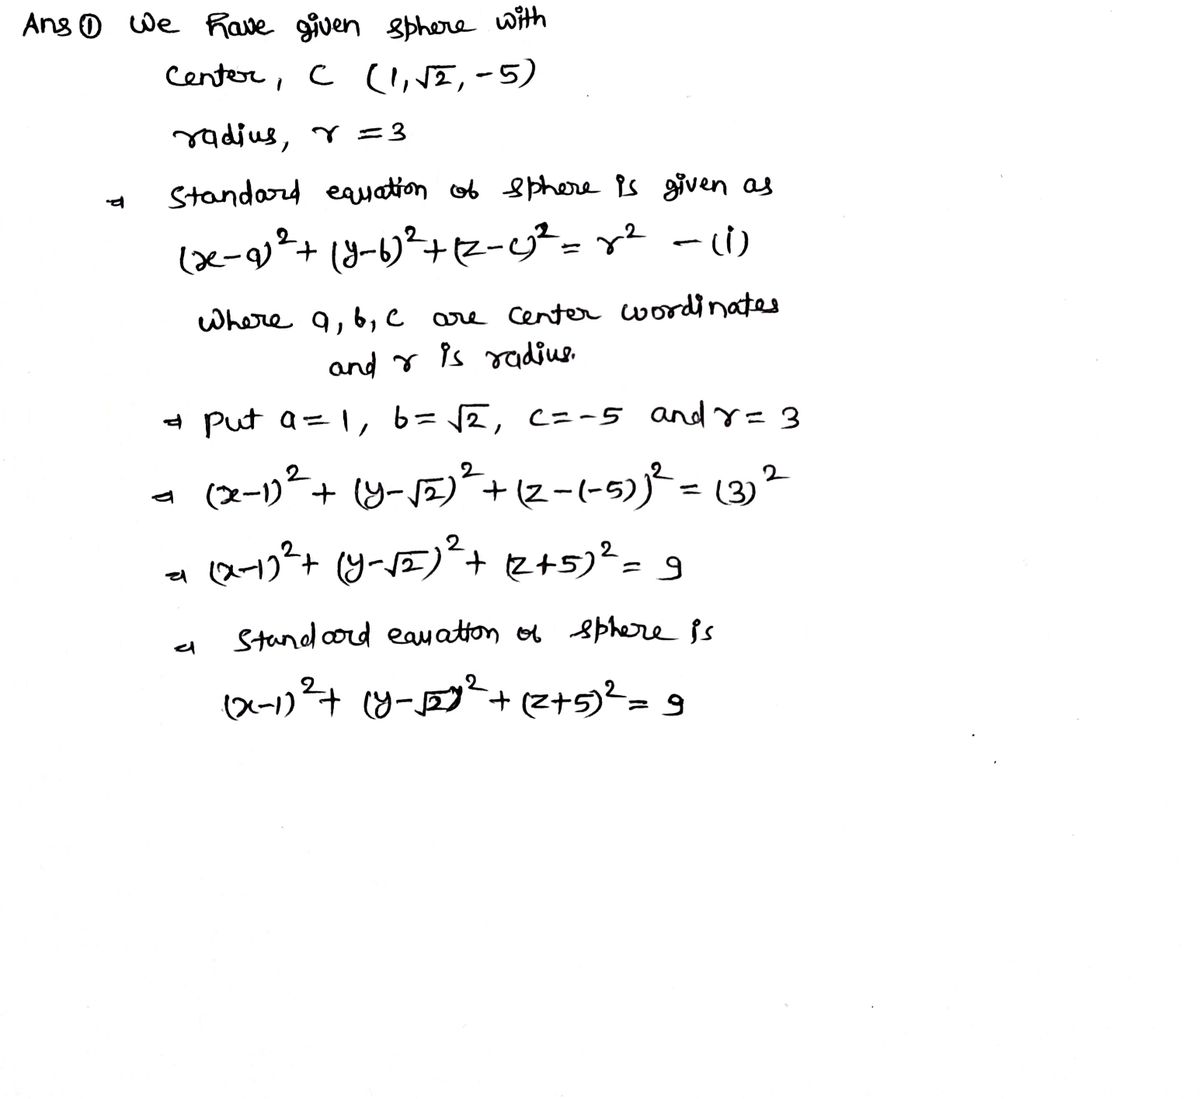 Ans ① We have given sphere with
center, C (1, √2, -5)
radius, r = 3
⇒ Standard equation of sphere is given as
(x-a)² + (y-b)² + (z-c)² = r² - (i)
where a, b, c are center coordinates
and r is radius.
⇒ Put a = 1, b = √2, c = -5 and r = 3
⇒ (x-1)² + (y-√2)² + (z-(-5))² = (3)²
⇒ (x-1)² + (y-√2)² + (z+5)² = 9
⇒ Standard equation of sphere is
(x-1)² + (y-√2)² + (z+5)² = 9